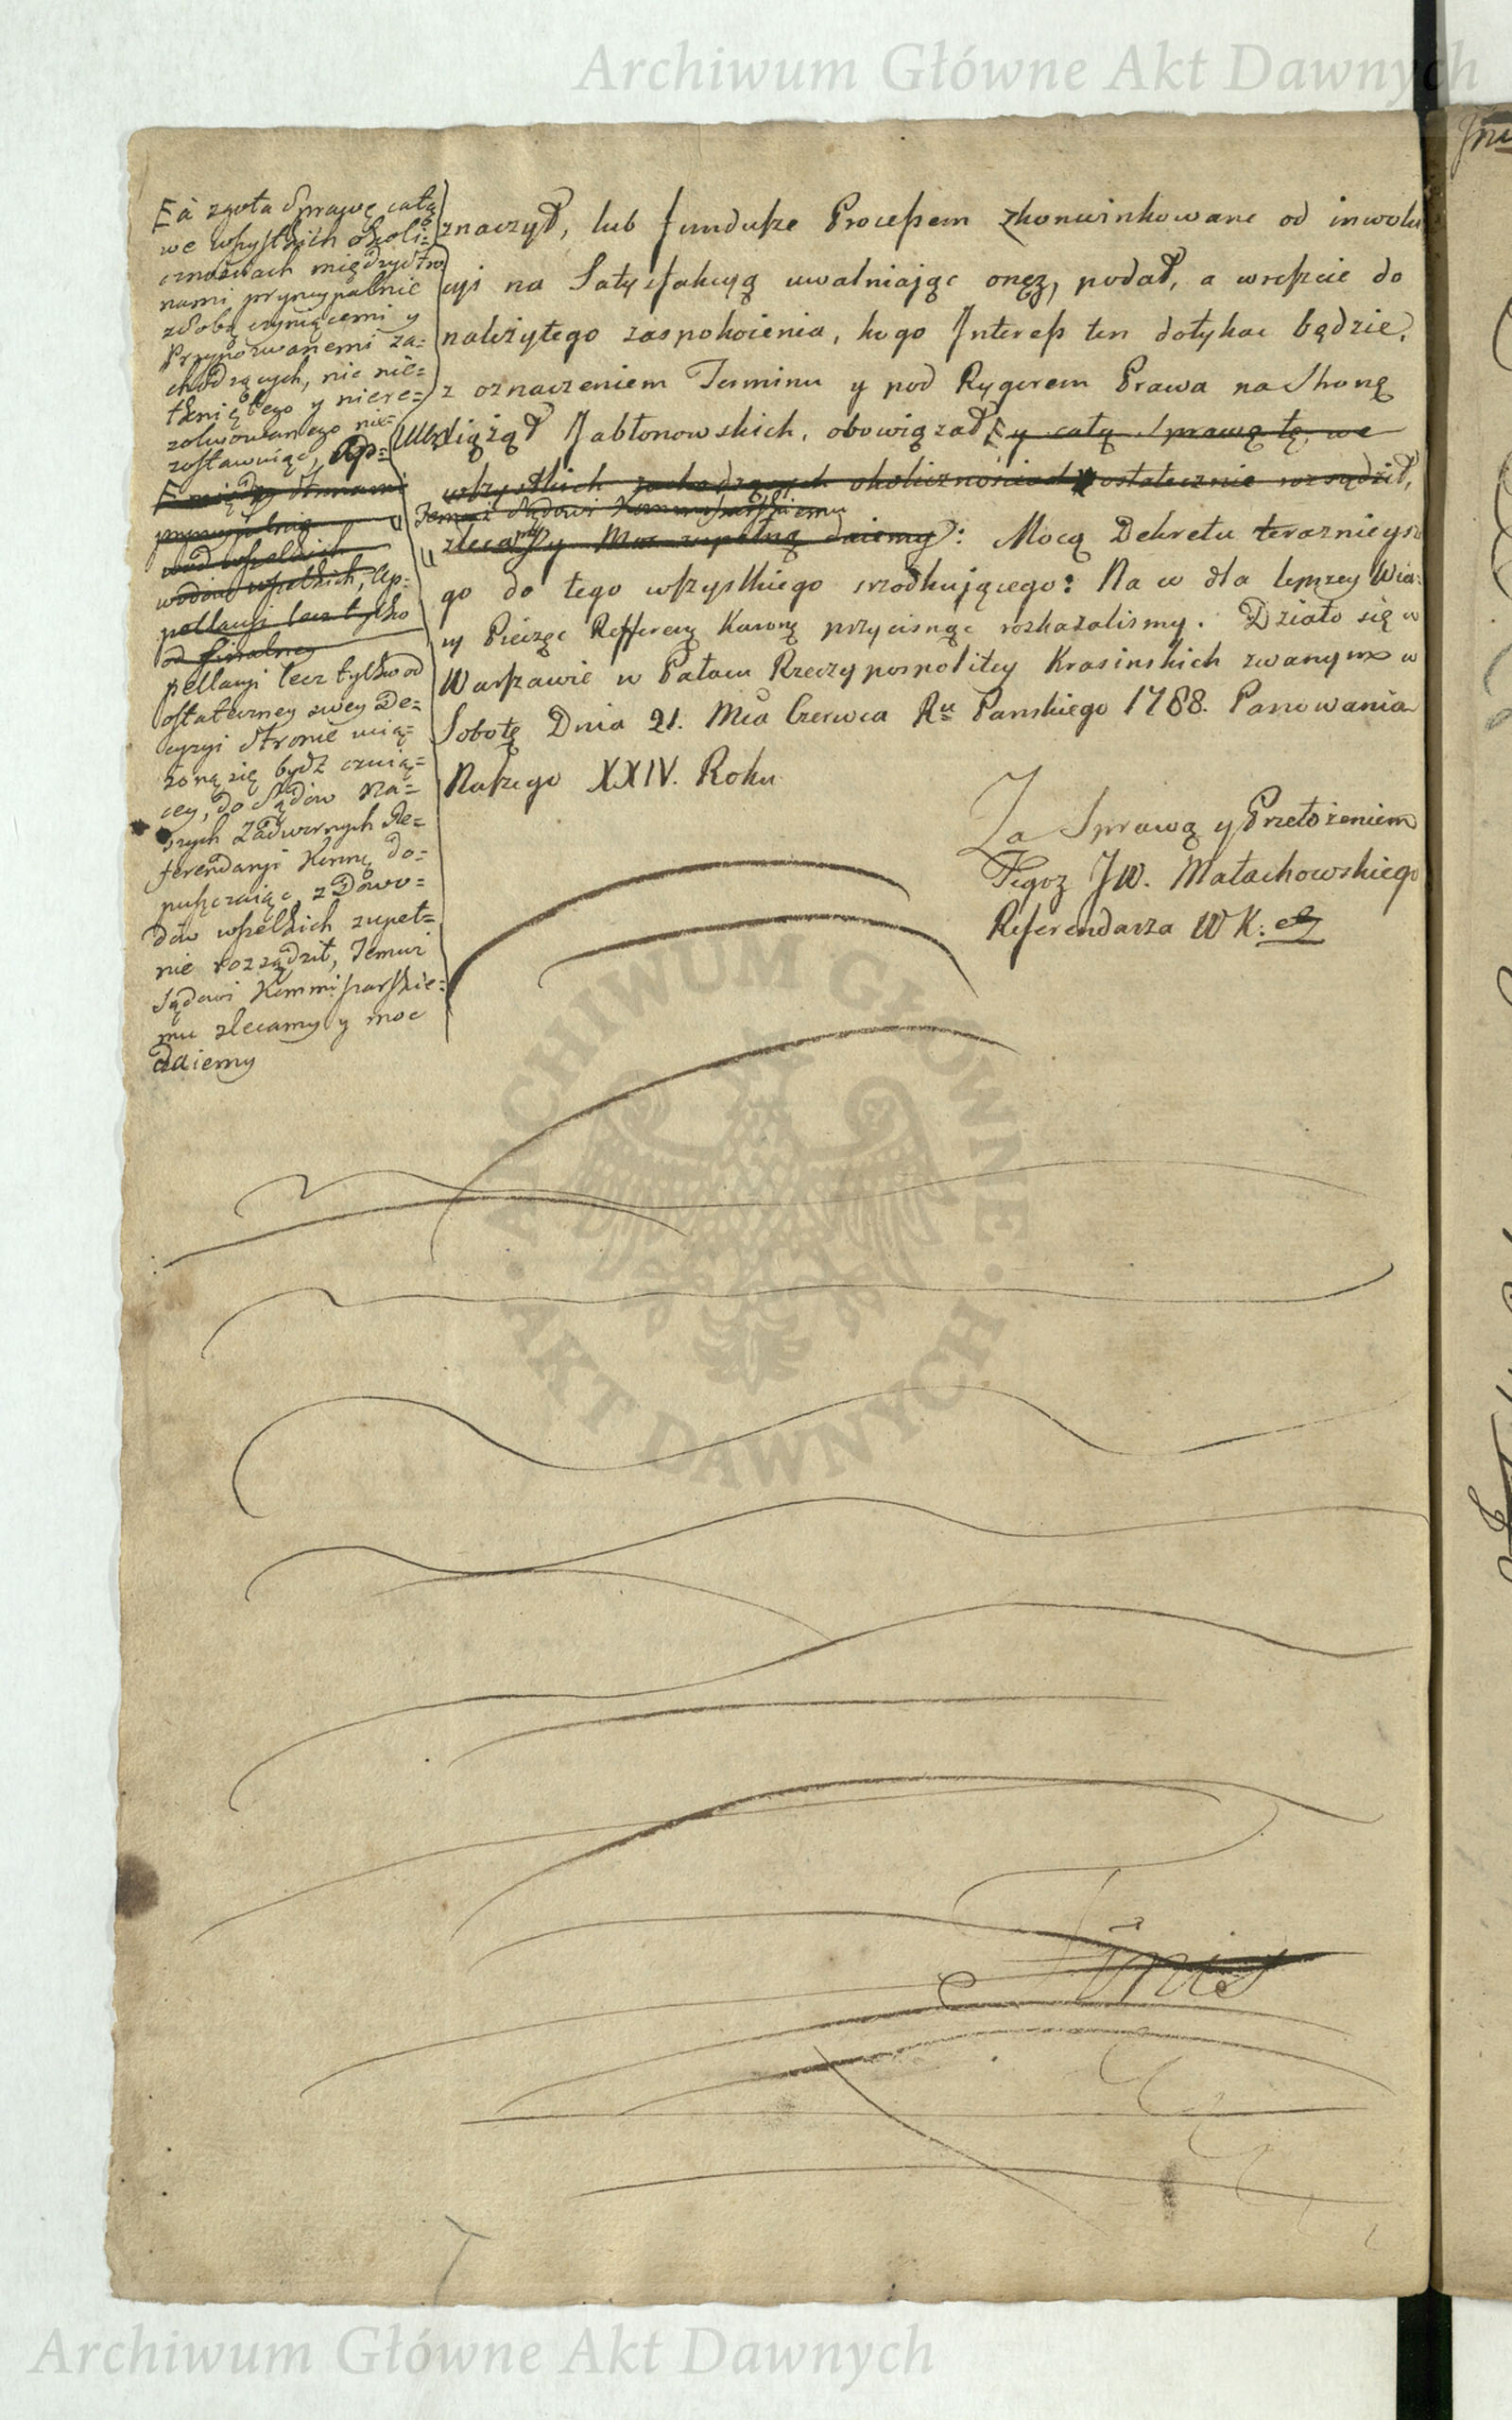 Archiwum Główne Akt Dawnych
[à zgoła Sprawę całą
we wszystkich okoli=
cznościach między Stro
nami pryncypalnie
z Sobą czyniącemi y
Przypozwanemi za=
chodzących, nic nie=
tkniętego y niere=
zolwowanego nie=
zostawuiąc, Ap=
[między Stronami
pryncypalnie
wszelkich, Ap:
pellacyi lecz tylko
od finalney
pellacyi lecz tylko od
ostateczney swey De=
cyzyi Stronie ucią=
żoną się bydź czuią=
cey, do Sądów Na=
szych Zadwornych Re=
ferendaryi Koronney do=
puszczaiąc, z Dowo=
dów wszelkich zupeł=
nie rozsądził, Temuż
Sądowi Kommissarskie=
mu zlecamy y moc
daiemy
znaczył, lub fundusze Processem zkonwinkowane od inwolu
cyi na Satysfakcyą uwalniaiąc onęż, podał, a wreszcie do
należytego zaspokoienia, kogo Interess ten dotykać będzie,
z oznaczeniem Terminu y pod Rygorem Prawa na Stronę
Xiążąt Jabłonowskich, obowiązał [y całą Sprawę tę, we
wszystkich zachodzących okolicznościach ostatecznie rozsądził,
Temuż Sądowi Kommissarskiemu
zlecamy y Moc zupełną daiemy: Mocą Dekretu teraznieysze
go do tego wszystkiego srzodkuiącego: Na co dla lepszey Wia=
ry Pieczęć Reffereń Koronną przycisnąć rozkazalismy. Działo się w
Warszawie w Pałacu Rzeczypospolitey Krasinskich zwanym w
Sobotę Dnia 21. Mca Czerwca Rku Panskiego 1788. Panowania
Naszego XXIV. Roku
Za Sprawą y Przełożeniem
Tegoż JW. Małachowskiego
Referendarza WK:
Finis
ARCHIWUM GŁÓWNE · AKT DAWNYCH ·
Archiwum Główne Akt Dawnych